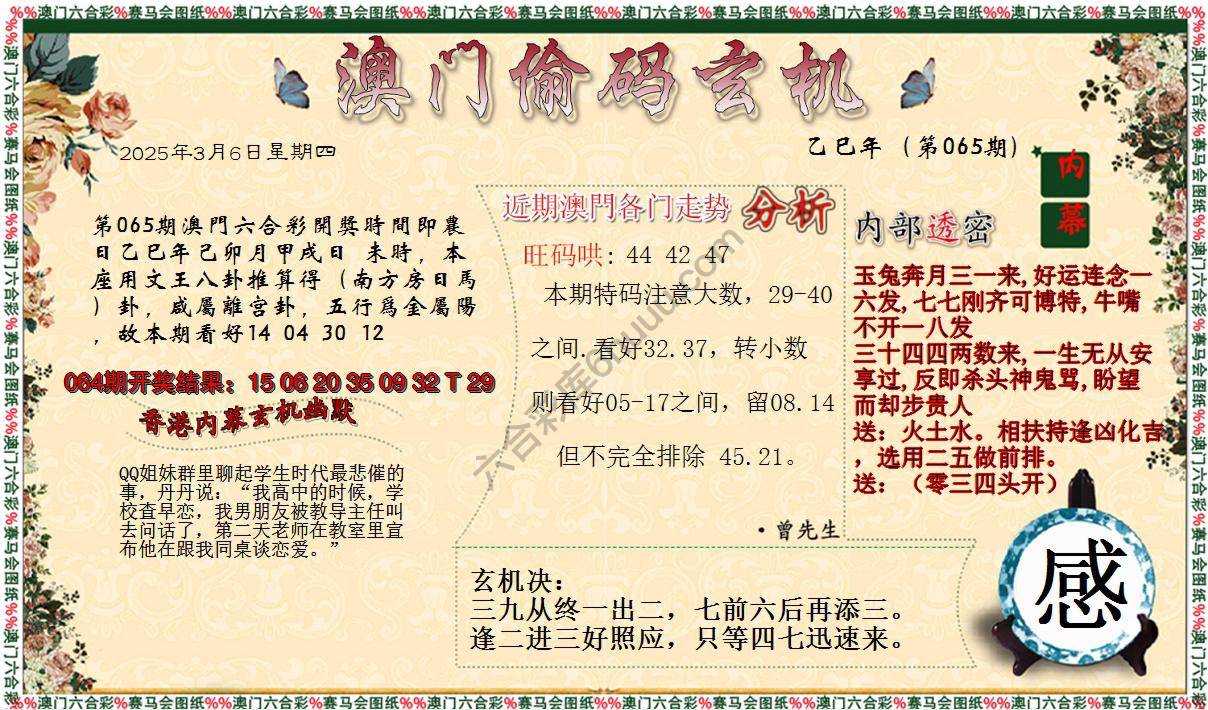 %%澳门六合彩%赛马会图纸%%澳门六合彩%赛马会图纸%%澳门六合彩%赛马会图纸%%澳门六合彩%赛马会图纸%%澳门六合彩%赛马会图纸%%澳门六合彩%赛马会图纸%%
澳门偷码玄机
2025年3月6日星期四
乙巳年（第065期）
内幕
第065期澳門六合彩開獎時間即農
日乙巳年己卯月甲戌日 未時，本
座用文王八卦推算得（南方房日馬
）卦，咸屬離宫卦，五行爲金屬陽
，故本期看好14 04 30 12
064期开奖结果：15 06 20 35 09 32 T 29
香港内幕玄机幽默
QQ姐妹群里聊起学生时代最悲催的
事，丹丹说：“我高中的时候，学
校查早恋，我男朋友被教导主任叫
去问话了，第二天老师在教室里宣
布他在跟我同桌谈恋爱。”
近期澳門各门走势 分析
旺码哄: 44 42 47
本期特码注意大数，29-40
之间.看好32.37，转小数
则看好05-17之间，留08.14
但不完全排除 45.21。
·曾先生
内部透密
玉兔奔月三一来,好运连念一
六发,七七刚齐可博特,牛嘴
不开一八发
三十四四两数来,一生无从安
享过,反即杀头神鬼骂,盼望
而却步贵人
送：火土水。相扶持逢凶化吉
，选用二五做前排。
送：（零三四头开）
玄机决：
三九从终一出二，七前六后再添三。
逢二进三好照应，只等四七迅速来。
感